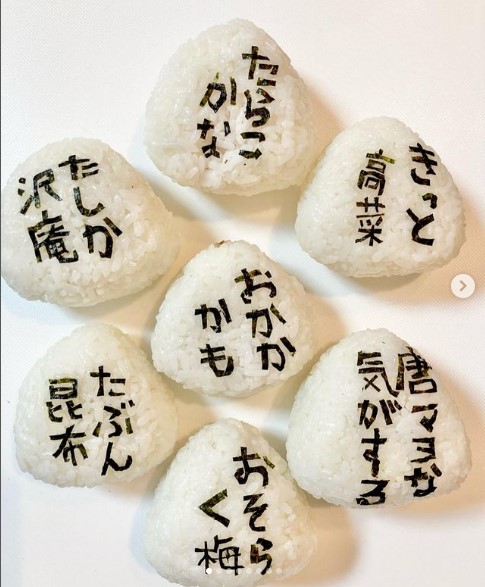 たらこ
かな
きっと
高菜
たしか
沢庵
おかか
かも
唐マヨな
気がする
たぶん
昆布
おそら
く梅